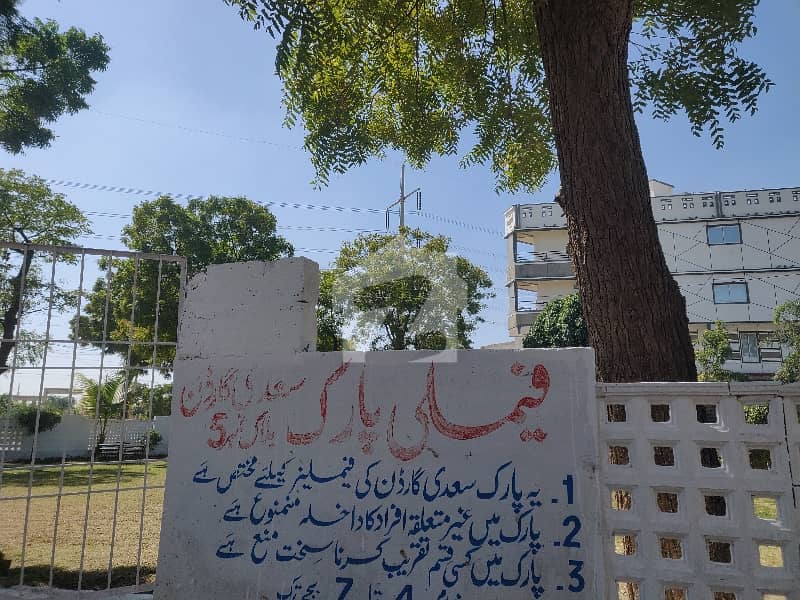 فیملی پارک سعدی گارڈن
بلاک نمبر 5
1- یہ پارک سعدی گارڈن کی فیملیز کیلئے مختص ہے
2- پارک میں غیر متعلقہ افراد کا داخلہ ممنوع ہے
3- پارک میں کسی قسم تقریب کرنا سخت منع ہے
4 تا 7 بجے تک